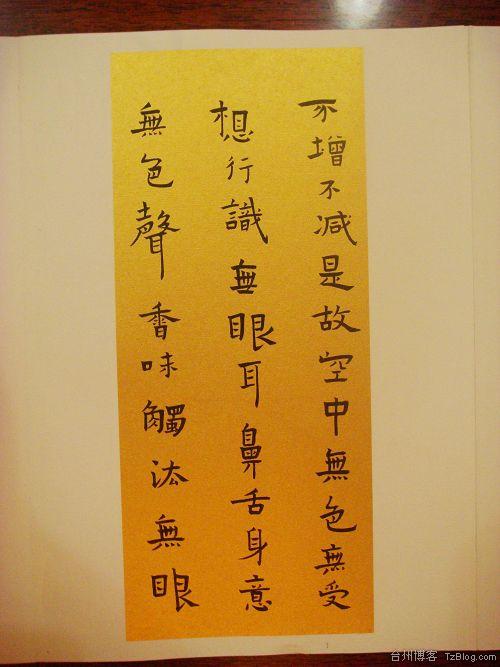 不增不减是故空中無色無受
想行識無眼耳鼻舌身意
無色聲香味觸法無眼
台州博客
TzBlog.com